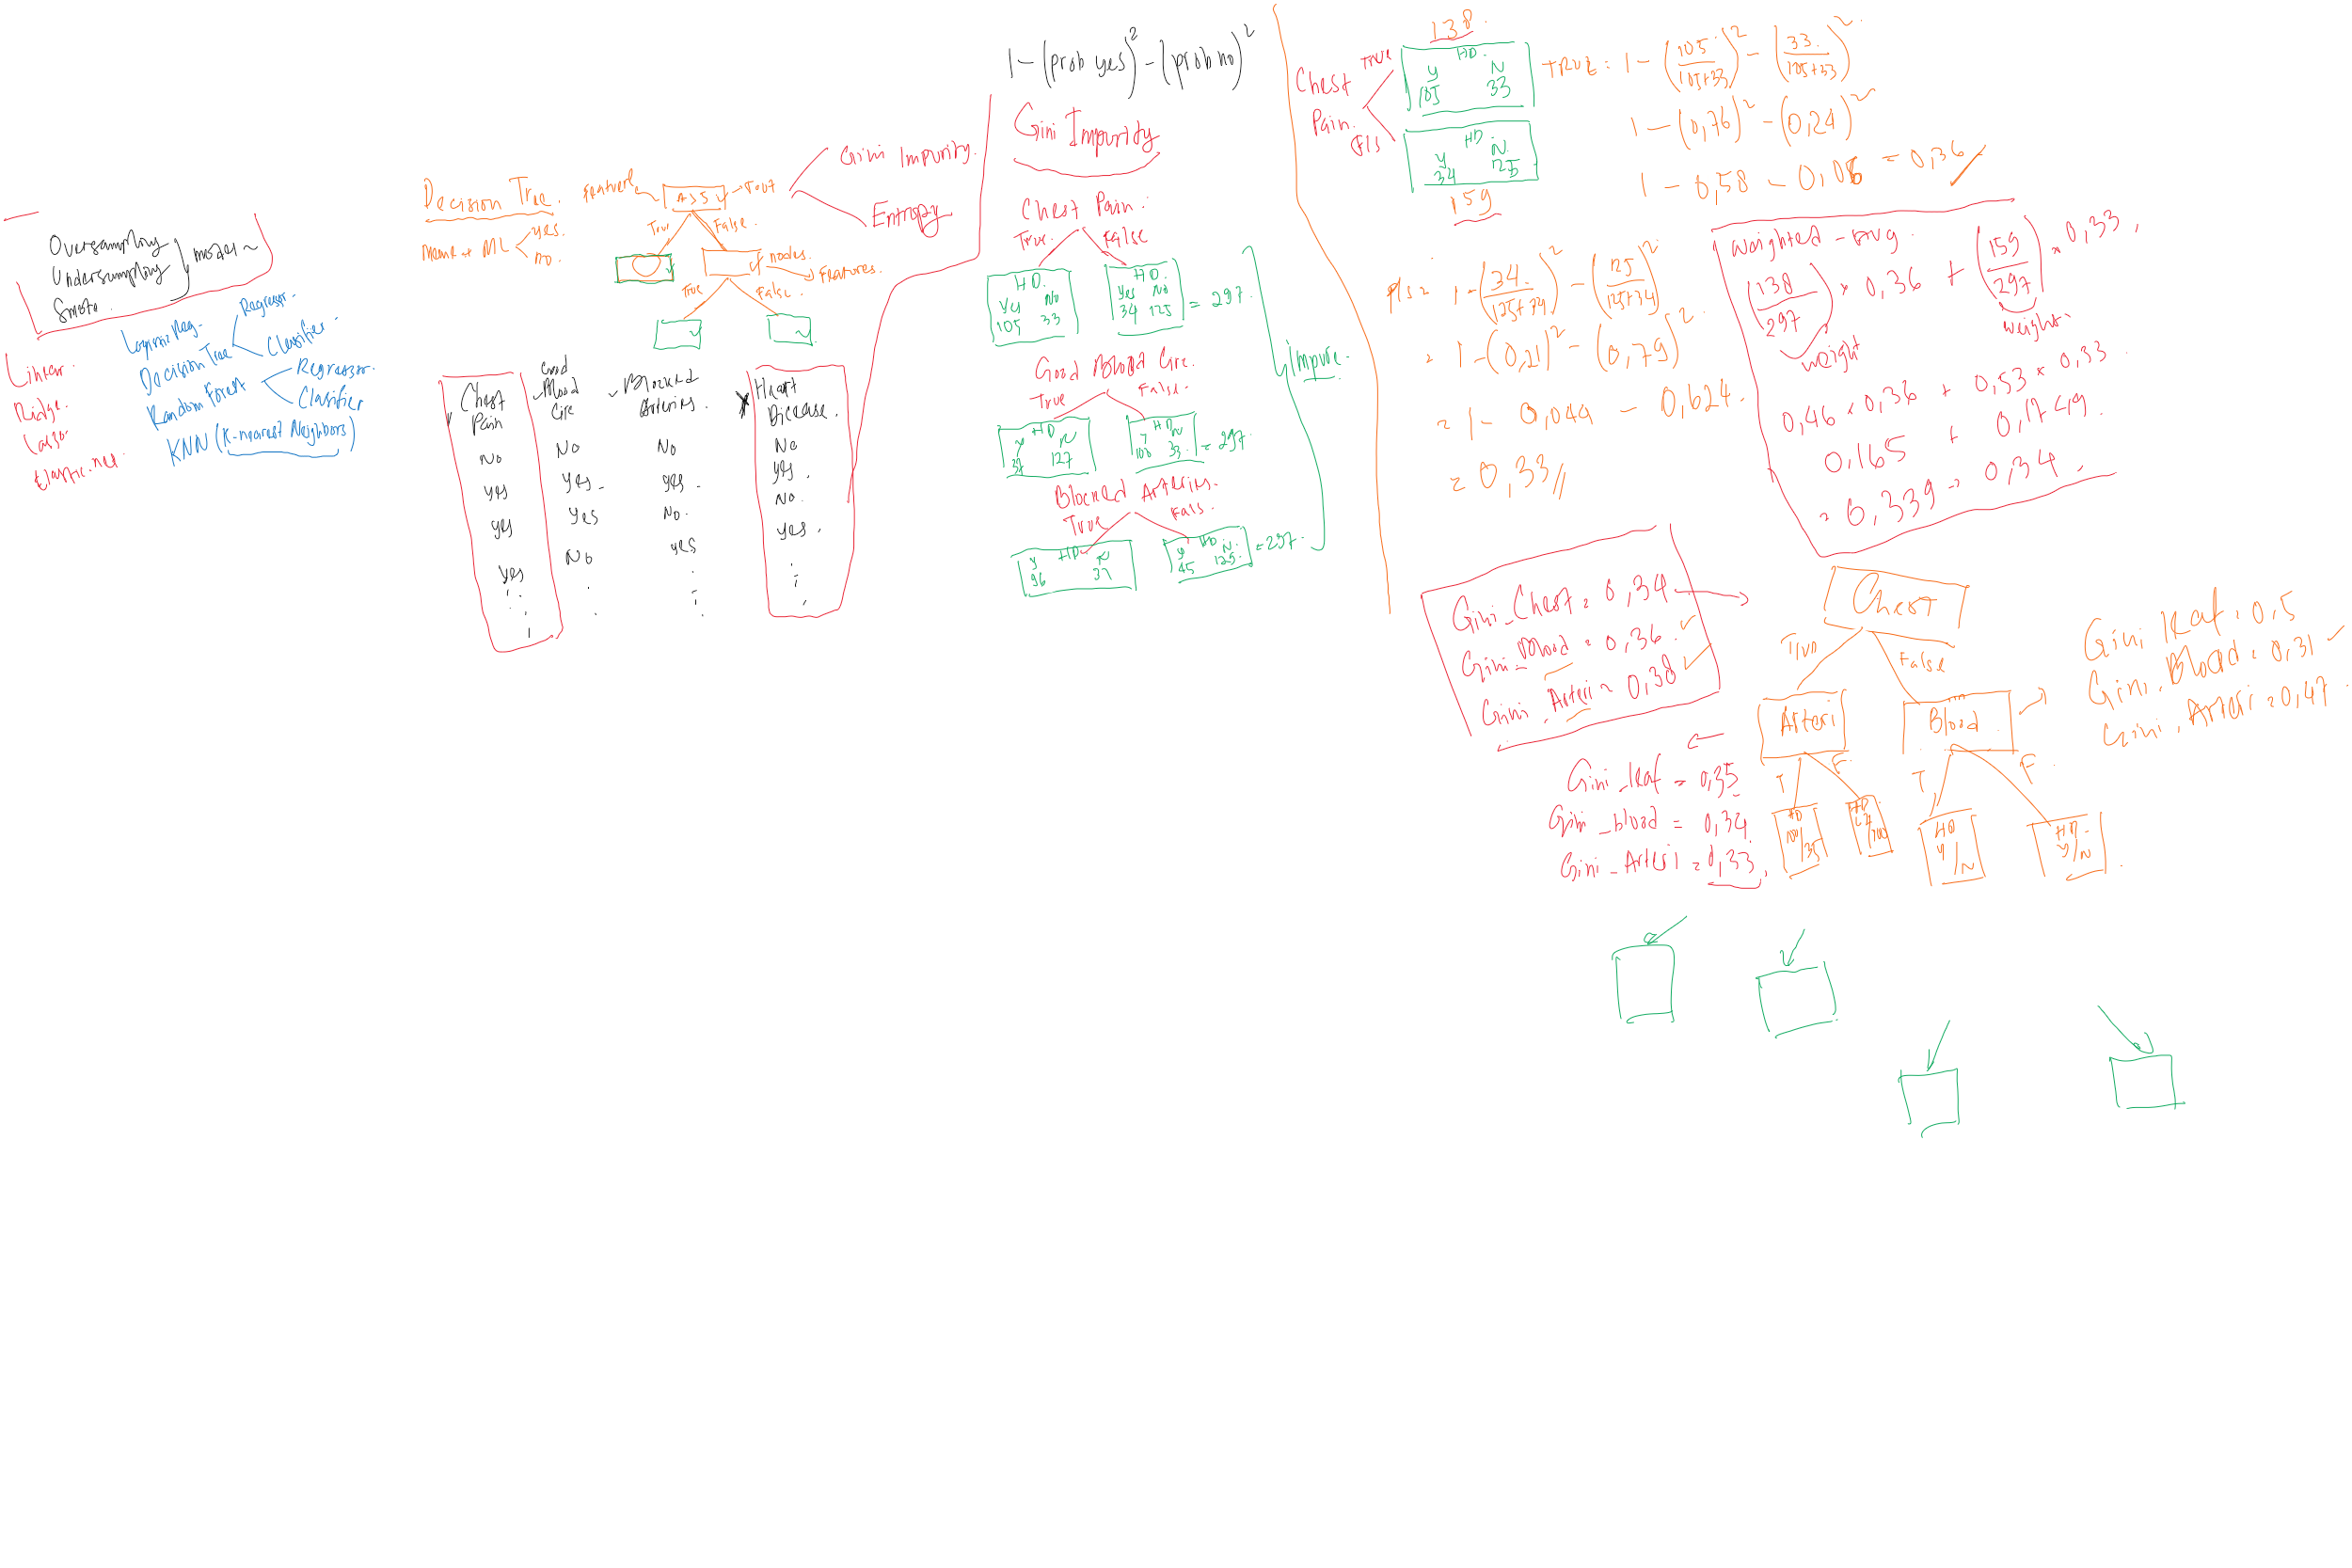 Oversampling
Undersampling
Smote
model
Linear.
Ridge.
Lasso.
Elastic-net.
Logistic Reg.
Decision Tree
Regressor.
Classifier.
Random Forest
Regressor.
Clasifier
KNN (K-nearest Neighbors)
Decision Tree.
feature
yes.
no.
True
False.
nodes.
Features.
True
False.
Gini Impurity.
Entropy
Chest Pain
Good Blood Circ
Blocked Arteries.
Heart Dicease.
No No No No
yes yes yes yes.
yes yes No. No.
yes No yes yes.
1-(prob yes)²-(prob no)²
Gini Impurity
Chest Pain.
True. False
HD.
Yes No
105 33
HD.
Yes No
34 125
= 297.
Good Blood Circ.
True False.
HD
y N
37 127
HD
y N
100 33
= 297
Blocked Arteries.
True Fals.
HD
y N
HD
y N.
45 125.
= 297.
Impure.
Chest Pain.
True
Fls
138.
HD.
y N
105 33
HD
y N
34 125
159
TRUE: 1-(105/105+33)²-(33/105+33)²
1-(0,76)²-(0,24)²
1-0,58-0,06 = 0,36
Fls = 1-(34/125+34)²-(125/125+34)²
= 1-(0,21)²-(0,79)²
= 1-0,044-0,624.
= 0,33
Weighted-Avg.
(138/297) × 0,36 + (159/297) × 0,33
weight weight
0,46 × 0,36 + 0,53 × 0,33
0,165 + 0,1749.
= 0,339 = 0,34
Gini_Chest = 0,34
Gini_Blood = 0,36
Gini_Arteri = 0,38
Chest
True False
Arteri
Blood
T F.
T F
HD
HD
HD
y/N
HD
y/N
Gini_leaf = 0,35
Gini_blood = 0,34
Gini_Arteri = 0,33
Gini leaf = 0,5
Gini_Blood = 0,31
Gini_Arteri = 0,47